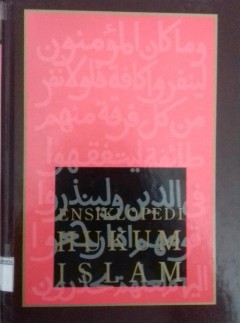 وما كان المؤمنون
لينفروا كافة فلولا نفر
من كل فرقة منهم
طائفة ليتفقهوا
الدين ولينذروا
ENSIKLOPEDI
HUKUM
ISLAM